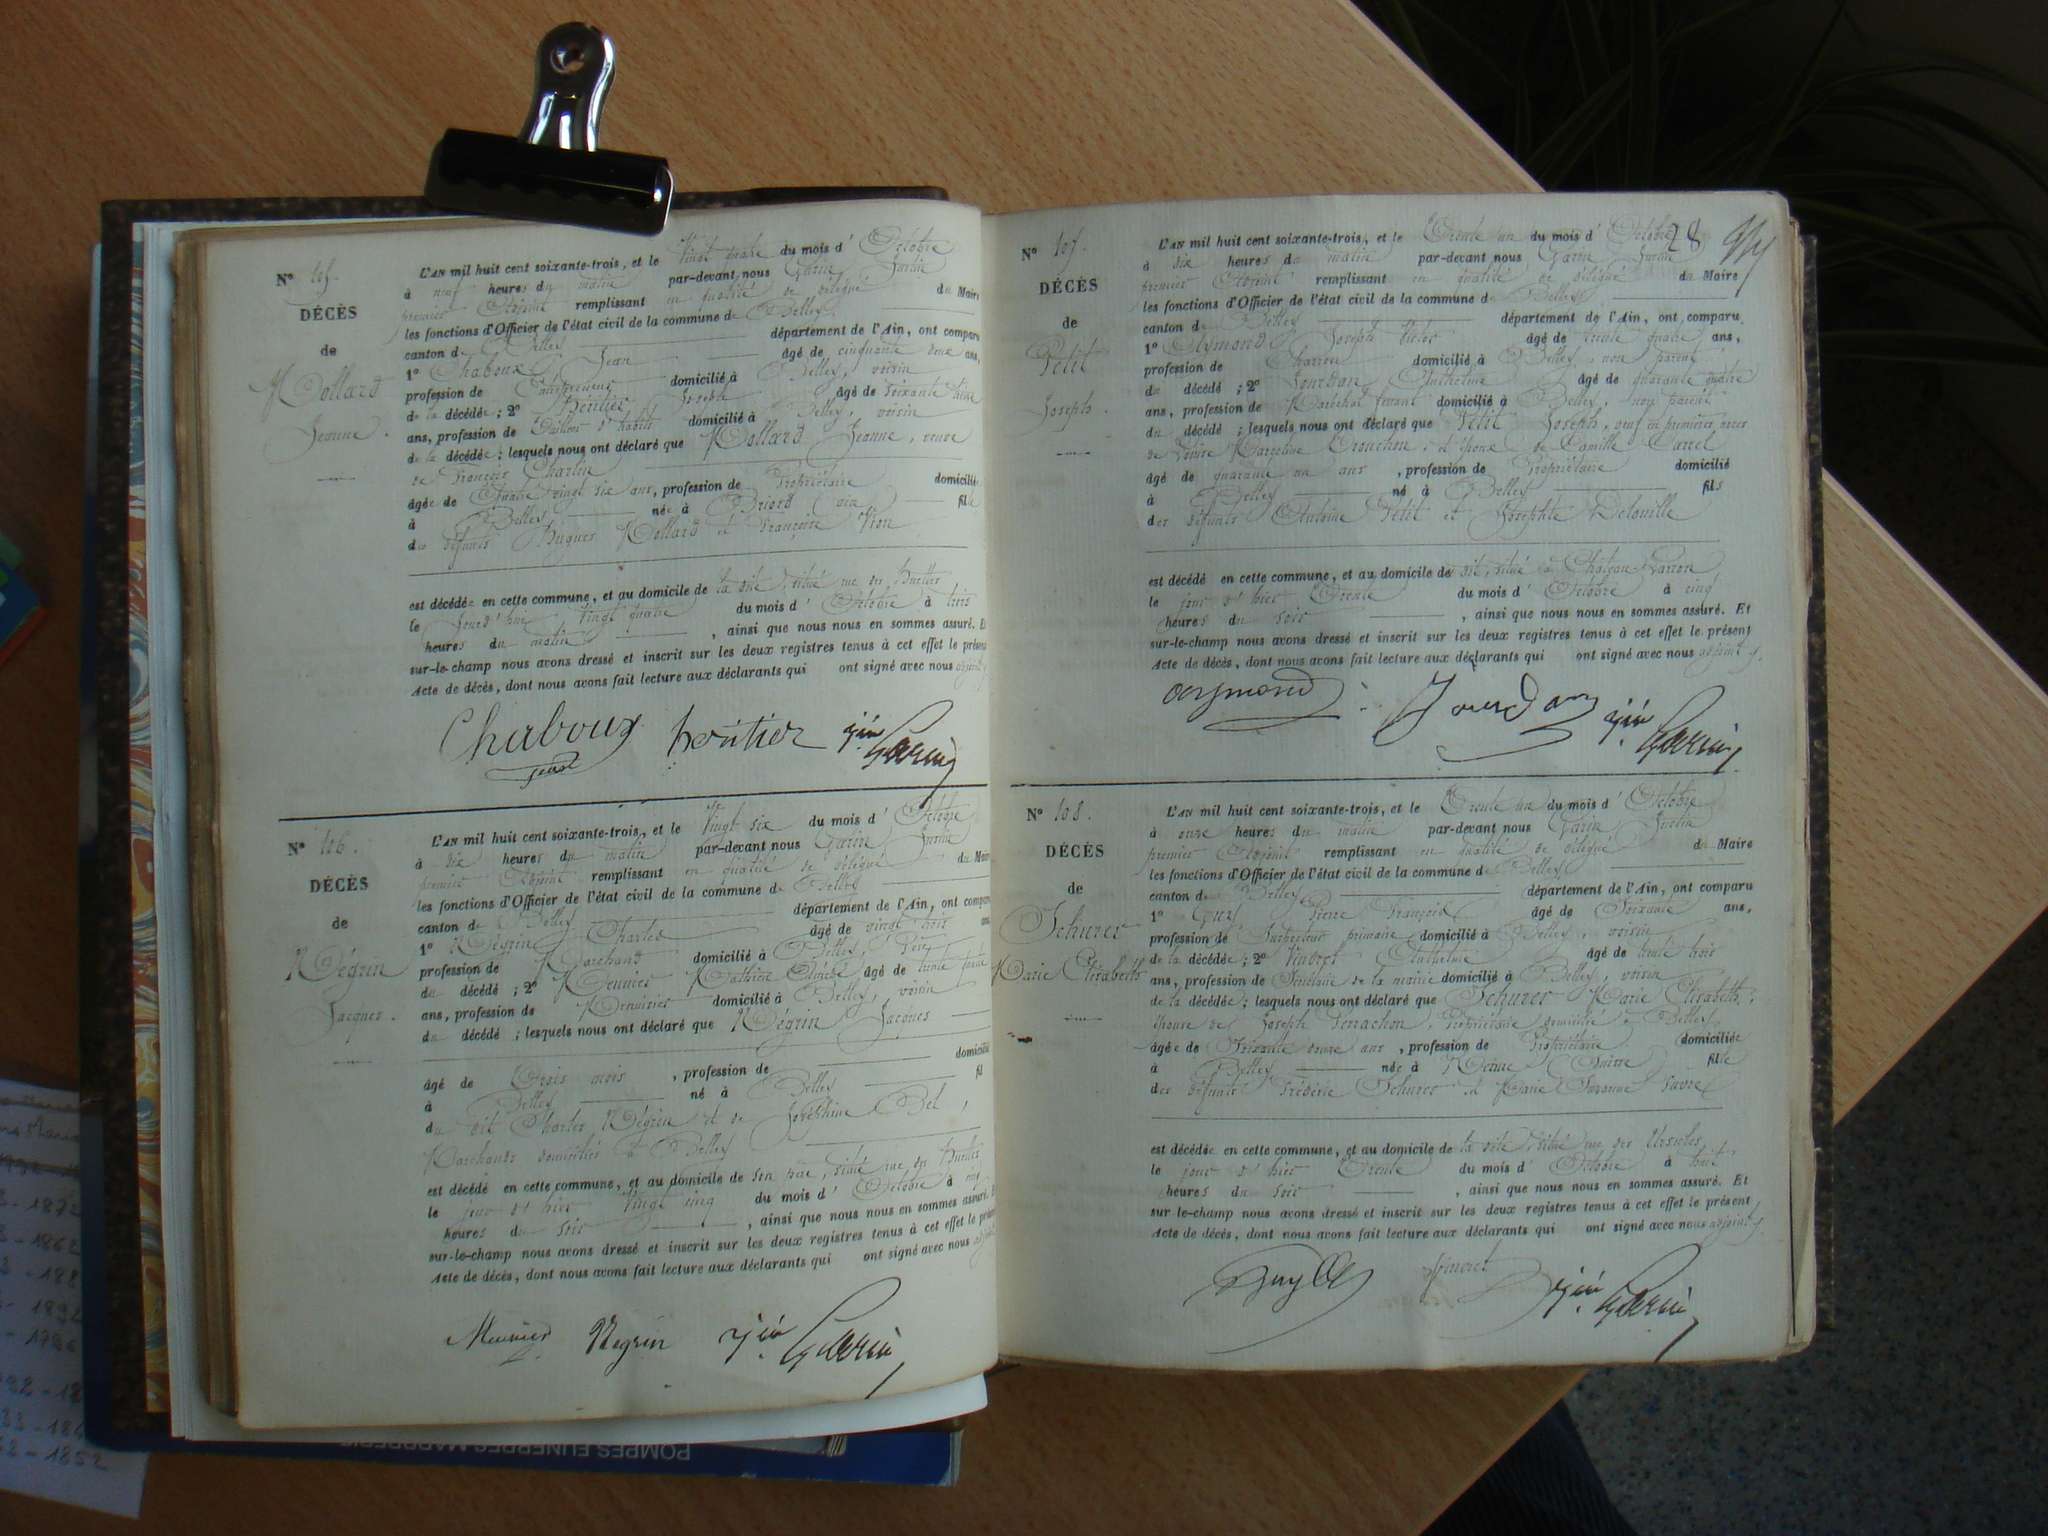 N° 105.
DÉCÈS
de
Mollard
Jeanne.
L'AN mil huit cent soixante-trois, et le Vingt quatre du mois d'Octobre
à neuf heures du matin par-devant nous Garin Justin
premier Adjoint remplissant en qualité de délégué du Maire
les fonctions d'Officier de l'état civil de la commune de Belley
canton de Belley département de l'Ain, ont comparu
1° Chaboux Jean âgé de cinquante deux ans,
profession de Entrepreneur domicilié à Belley, voisin
de la décédée; 2° Héritier Joseph âgé de soixante
ans, profession de Tailleur d'habits domicilié à Belley, voisin
de la décédée; lesquels nous ont déclaré que Mollard Jeanne, veuve
de François Charlin
âgée de Quatre vingt six ans, profession de Propriétaire domiciliée
à Belley née à Briord (Ain) fille
des défunts Hugues Mollard et Françoise Vion
est décédée en cette commune, et au domicile de la dite, situé rue des
le jourd'hui vingt quatre du mois d'Octobre à trois
heures du matin, ainsi que nous nous en sommes assuré. Et
sur-le-champ nous avons dressé et inscrit sur les deux registres tenus à cet effet le présent
Acte de décès, dont nous avons fait lecture aux déclarants qui ont signé avec nous adjoint
Chaboux Jean héritier Garin
N° 106.
DÉCÈS
de
Négrin
Jacques.
L'AN mil huit cent soixante-trois, et le Vingt six du mois d'Octobre
à dix heures du matin par-devant nous Garin Justin
premier Adjoint remplissant en qualité de délégué du Maire
les fonctions d'Officier de l'état civil de la commune de Belley
canton de Belley département de l'Ain, ont comparu
1° Négrin Charles âgé de vingt trois ans
profession de Marchand domicilié à Belley, Père
du décédé; 2° Meunier Mathieu âgé de trente
ans, profession de Menuisier domicilié à Belley, voisin
du décédé; lesquels nous ont déclaré que Négrin Jacques
âgé de trois mois, profession de domicilié
à Belley né à Belley fil
du dit Charles Négrin et de Joséphine Bel,
Marchands domiciliés à Belley
est décédé en cette commune, et au domicile de son père, situé rue des
le jour d'hier Vingt cinq du mois d'Octobre à cinq
heures du soir, ainsi que nous nous en sommes assuré. Et
sur-le-champ nous avons dressé et inscrit sur les deux registres tenus à cet effet le présent
Acte de décès, dont nous avons fait lecture aux déclarants qui ont signé avec nous adjoint
Meunier Negrin Garin
28
N° 107.
DÉCÈS
de
Petit
Joseph.
L'AN mil huit cent soixante-trois, et le Trente un du mois d'Octobre
à dix heures du matin par-devant nous Garin Justin
premier Adjoint remplissant en qualité de délégué du Maire
les fonctions d'Officier de l'état civil de la commune de Belley
canton de Belley département de l'Ain, ont comparu
1° Aymond Joseph Victor âgé de trente quatre ans,
profession de Charron domicilié à Belley, non parent
du décédé; 2° Jourdan Anthelme âgé de quarante quatre
ans, profession de Maréchal ferrant domicilié à Belley, non parent
du décédé; lesquels nous ont déclaré que Petit Joseph, veuf en premières noces
de Louise Marceline et époux de Camille Carrel
âgé de quarante un ans, profession de Propriétaire domicilié
à Belley né à Belley fils
des défunts Antoine Petit et Josephte Delouille
est décédé en cette commune, et au domicile du dit, situé à Château-Garron
le jour d'hier Trente du mois d'Octobre à cinq
heures du soir, ainsi que nous nous en sommes assuré. Et
sur-le-champ nous avons dressé et inscrit sur les deux registres tenus à cet effet le présent
Acte de décès, dont nous avons fait lecture aux déclarants qui ont signé avec nous adjoint
aymond Jourdan Garin
N° 108.
DÉCÈS
de
Schurer
Marie Elisabeth
L'AN mil huit cent soixante-trois, et le Trente un du mois d'Octobre
à onze heures du matin par-devant nous Garin Justin
premier Adjoint remplissant en qualité de délégué du Maire
les fonctions d'Officier de l'état civil de la commune de Belley
canton de Belley département de l'Ain, ont comparu
1° Pierre François âgé de Soixante ans,
profession de Inspecteur primaire domicilié à Belley, voisin
de la décédée; 2° Vinbert Anthelme âgé de trente trois
ans, profession de Secrétaire de la mairie domicilié à Belley, voisin
de la décédée; lesquels nous ont déclaré que Schurer Marie Elisabeth,
épouse de Joseph Perrachon, Propriétaire domicilié à Belley
âgée de Soixante douze ans, profession de Propriétaire domiciliée
à Belley née à (Suisse) fille
des défunts Frédéric Schurer et Marie Suzanne Favre
est décédée en cette commune, et au domicile de la dite, situé rue des Ursules,
le jour d'hier Trente du mois d'Octobre à huit
heures du soir, ainsi que nous nous en sommes assuré. Et
sur-le-champ nous avons dressé et inscrit sur les deux registres tenus à cet effet le présent
Acte de décès, dont nous avons fait lecture aux déclarants qui ont signé avec nous adjoint
Garin
POMPES FUNEBRES MARBRERIE